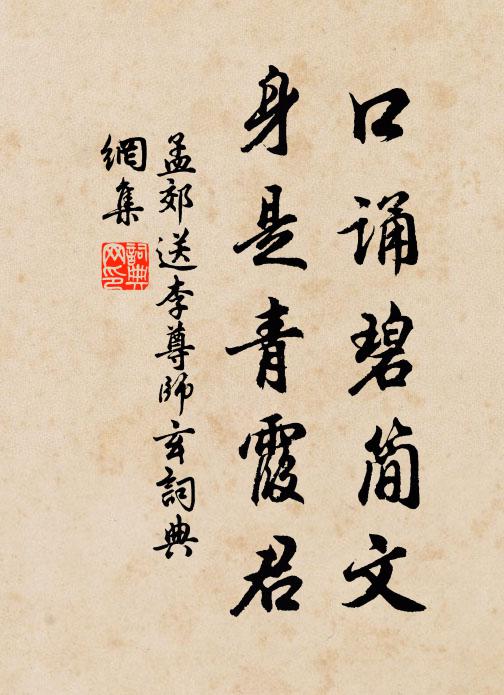 口诵碧简文
身是青霞君
孟郊送李尊师玄詞典
網集
詞典
网印